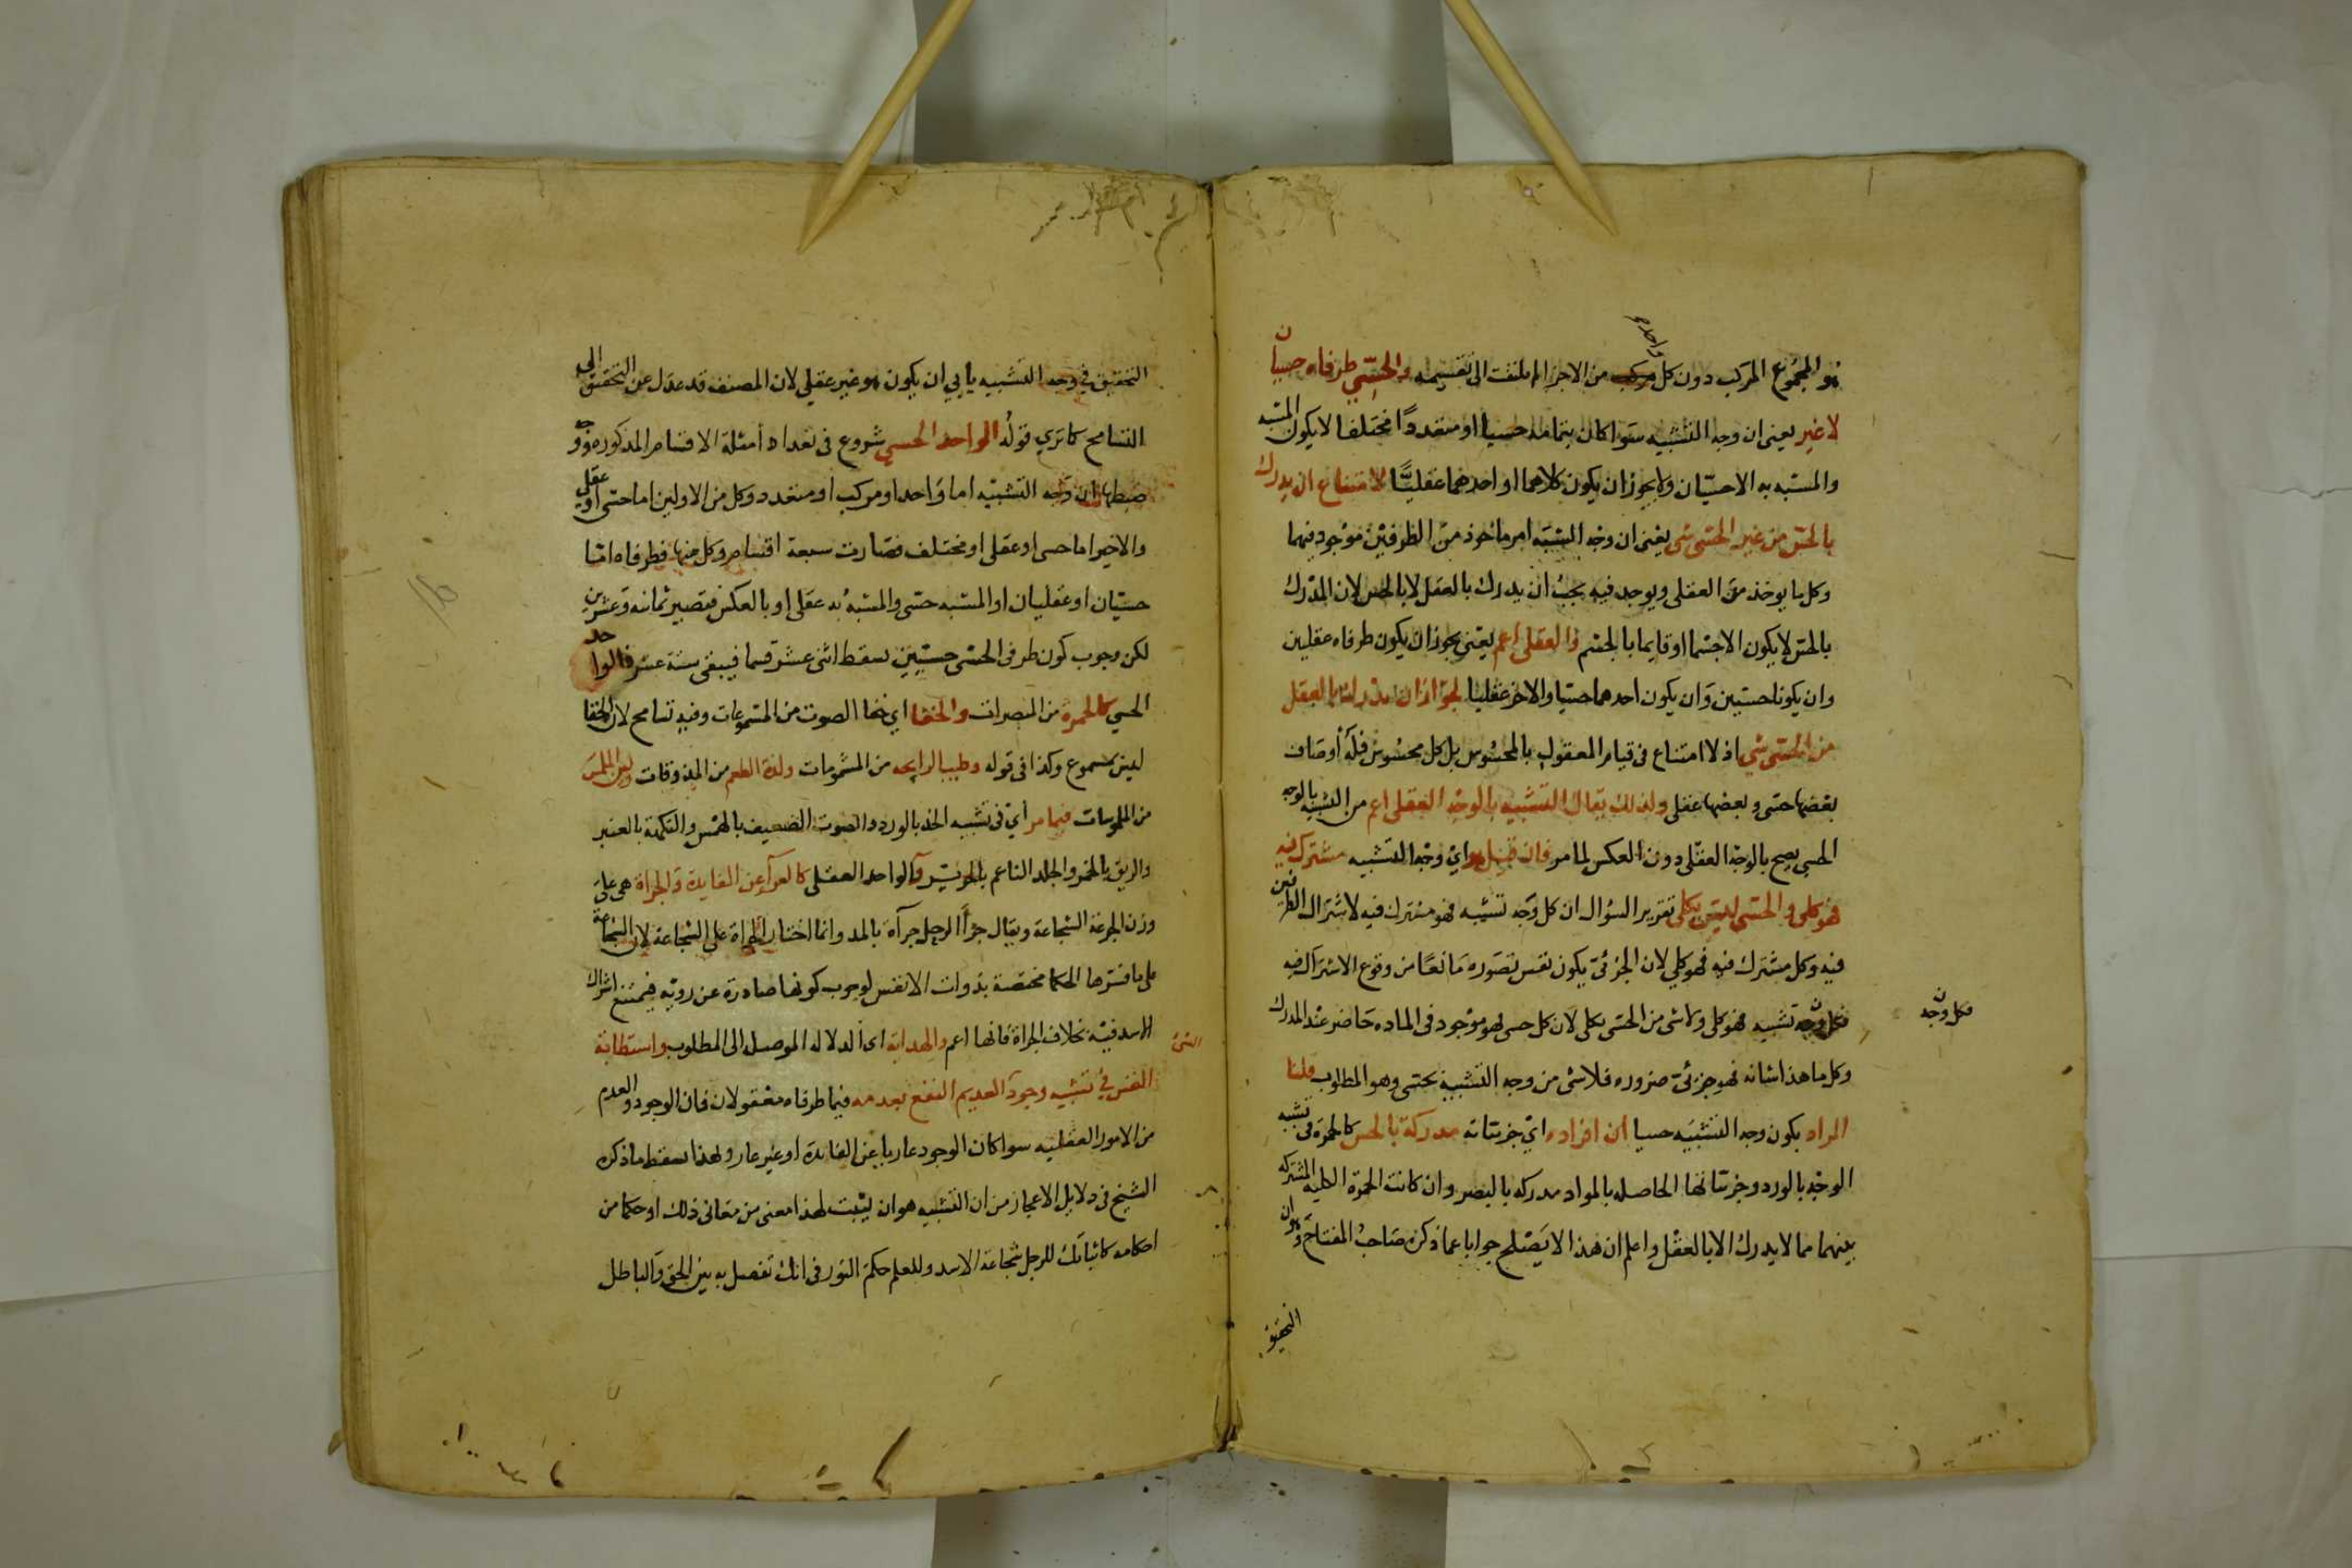 هو المجموع المركب دون كل واحد من الاجزا لم يلتفت الى تقسيمه والحسي طرفاه حسيان
لا غير يعنى ان وجه التشبيه سوا كان بتمامه حسيا او متعددا مختلفا لا يكون المشبه
والمشبه به الا حسيان ولا يجوز ان يكون كلاهما او احدهما عقليًّا لامتناع ان يدرك
بالحس من غير الحسى شى يعنى ان وجه الشبه امر ماخوذ من الطرفين موجود فيهما
وكل ما يوخذ من العقلى ويوجد فيه يجب ان يدرك بالعقل لا بالحس لان المدرك
بالحس لا يكون الا جسما او قايما بالجسم والعقلى اعم يعنى يجوز ان يكون طرفاه عقليين
وان يكونا حسيين وان يكون احدهما حسيا والاخر عقليا لجواز ان يدرك بالعقل
من الحسى شي اذ لا امتناع فى قيام المعقول بالمحسوس بل كل محسوس فله أوصاف
بعضها حسى وبعضها عقلى ولذلك يقال التشبيه بالوجه العقلى اعم من التشبيه بالوجه
الحسي يصح بالوجه العقلى دون العكس لما مر فان قيل هو اي وجه التشبيه مشترك فيه
فهو كلى والحسى ليس بكلى تقرير السؤال ان كل وجه تشبيه فهو مشترك فيه لاشتراك الطرفين
فيه وكل مشترك فيه فهو كلي لان الجزئىّ يكون نفس تصوره مانعًا من وقوع الاشتراك فيه
فكل وجه تشبيه فهو كلى ولا شى من الحسى بكلى لان كل حسى فهو موجود فى الماده حاضر عند المدرك
فكل وجه
وكل ما هذا شانه فهو جزئىّ ضروره فلا شى من وجه التشبيه بحسى وهو المطلوب قلنا
المراد بكون وجه التشبيه حسيا ان افراده اي جزئياته مدركة بالحس كالحمرة فى تشبيه
الوجه بالورد وجزئياتها الحاصله بالمواد مدركه بالبصر وان كانت الحمرة الكليه المشتركه
بينهما مما لا يدرك الا بالعقل واعلم ان هذا لا يصلح جوابا عما ذكره صاحب المفتاح وهو ان
التحقيق
التحقيق في وجه التشبيه يأبي ان يكون هو غير عقلي لان المصنف قد عدل عن التحقيق الى
التسامح كما ترى قولُه الواحد الحسي شروع فى تعداد أمثلة الاقسام المذكوره ووجه
ضبطها ان وجه التشبيه اما واحد او مركب او متعدد وكل من الاولين اما حسى او عقلي
والاخير اما حسى او عقلى او مختلف فصارت سبعة اقسام وكل منها فطرفاه امّا
حسيّان او عقليان او المشبه حسى والمشبه به عقلى او بالعكس فتصير ثمانيه وعشرين
لكن وجوب كون طرفى الحسى حسيّين يسقط اثنى عشر قسما فيبقى ستة عشر فالواحد
الحسي كالحمرة من المبصرات والخفا اي خفا الصوت من المسموعات وفيه تسامح لان الخفا
ليس بمسموع وكذا فى قوله وطيب الرايحه من المشمومات ولذة الطعم من المذوقات ولين الملمس
من الملموسات فيما مر أي فى تشبيه الخد بالورد والصوت الضعيف بالهمس والنكهة بالعنبر
والريق بالخمر والجلد الناعم بالحرير والواحد العقلى كالعرآء عن الفايدة والجراة هى على
وزن الجرعة الشجاعة ويقال جرأ الرجل جرآة بالمد وانما اختار الجراة على الشجاعة لان الشجاعة
على ما فسرها الحكما مختصة بذوات الانفس لوجوب كونها صادرة عن رويّه فيمتنع اشتراك
الاسد فيه بخلاف الجراة فانها اعم والهداية اى الدلاله الموصله الى المطلوب واستطابة
النفس في تشبيه وجود العديم النفع بعدمه فيما طرفاه معقولان فان الوجود والعدم
من الامور العقليه سوا كان الوجود عاريا عن الفايدة او غير عار وبهذا سقط ما ذكره
الشيخ فى دلايل الاعجاز من ان التشبيه هو ان يثبت لهذا معنى من معانى ذلك او حكما من
احكامه كاثباتك للرجل شجاعة الاسد وللعلم حكم النور فى انك تفصل به بين الحق والباطل